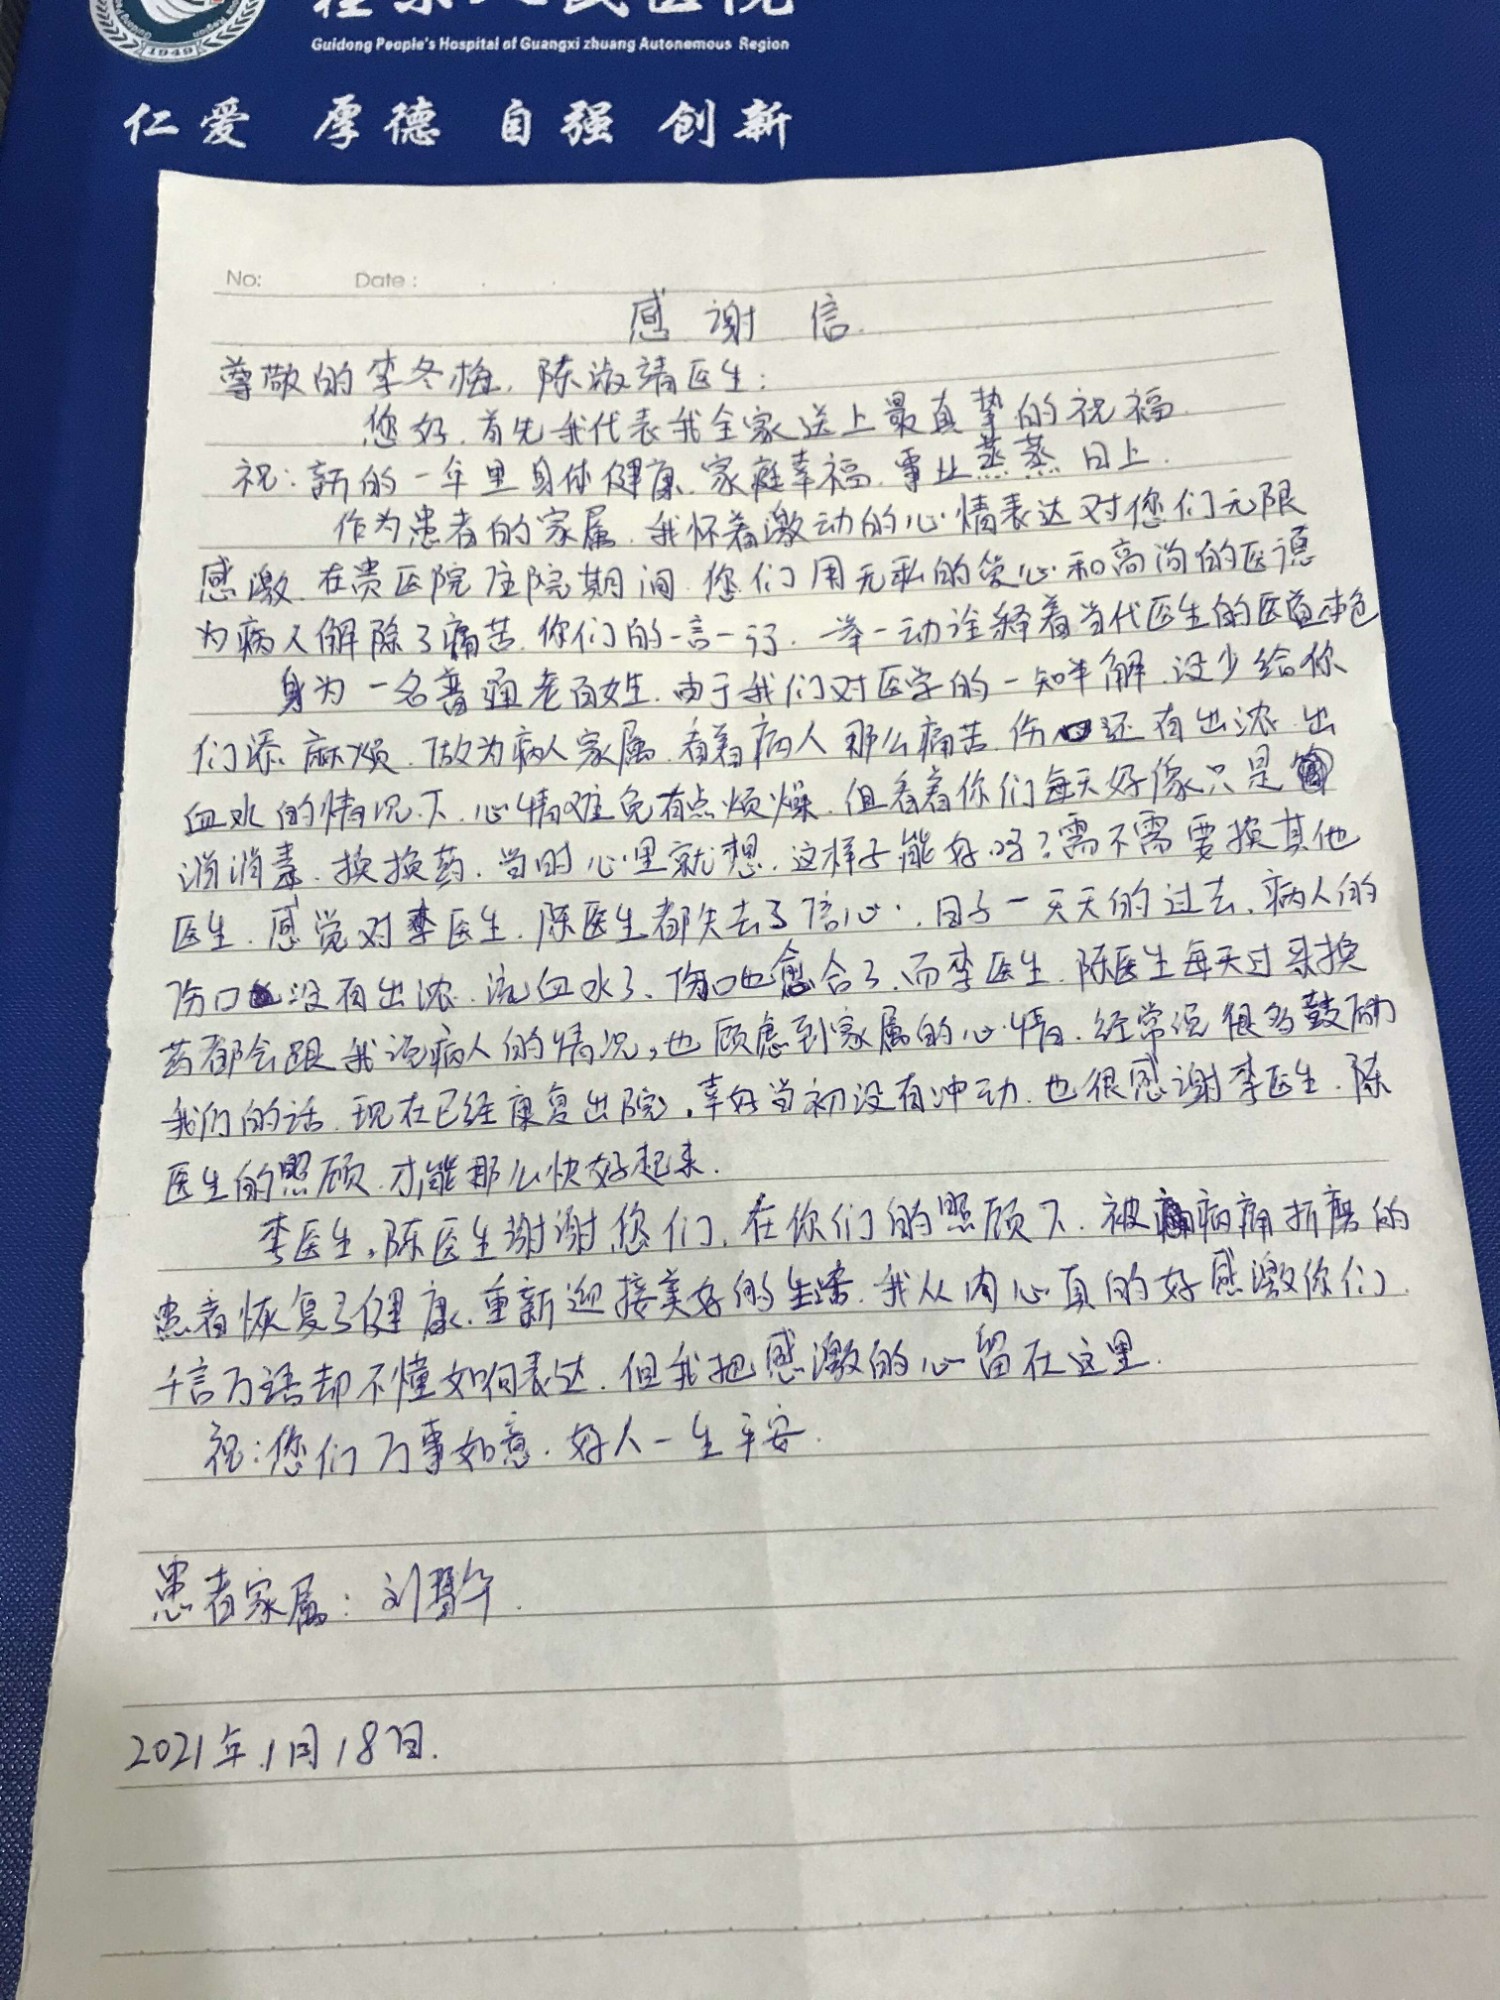 人民医院
Guidong People's Hospital of Guangxi zhuang Autonemous Region
1949
仁爱 厚德 自强 创新
No: Date:
感谢信.
尊敬的李冬梅.陈淑靖医生:
您好.首先我代表我全家送上最真挚的祝福.
祝:新的一年里身体健康.家庭幸福.事业蒸蒸日上.
作为患者的家属.我怀着激动的心情表达对您们无限
感激.在贵医院住院期间.您们用无私的爱心和高尚的医德
为病人解除了痛苦.你们的一言一行.一举一动诠释着当代医生的医道本色
身为一名普通老百姓.由于我们对医学的一知半解.没少给你
们添麻烦.做为病人家属.看着病人那么痛苦.伤口还有出浓.出
血水的情况下.心情难免有点烦燥.但看着你们每天好像只是
消消毒.换换药.当时心里就想.这样子能好吗?需不需要换其他
医生.感觉对李医生.陈医生都失去了信心.日子一天天的过去.病人的
伤口没有出浓.流血水了、伤口也愈合了.而李医生.陈医生每天过来换
药都会跟我说病人的情况,也顾虑到家属的心情.经常说很多鼓励
我们的话.现在已经康复出院,幸好当初没有冲动.也很感谢李医生.陈
医生的照顾.才能那么快好起来.
李医生,陈医生谢谢您们.在你们的照顾下.被病痛折磨的
患者恢复了健康.重新迎接美好的生活.我从内心真的好感激你们.
千言万语却不懂如何表达.但我把感激的心留在这里.
祝:您们万事如意.好人一生平安.
患者家属:刘
2021年1月18日.